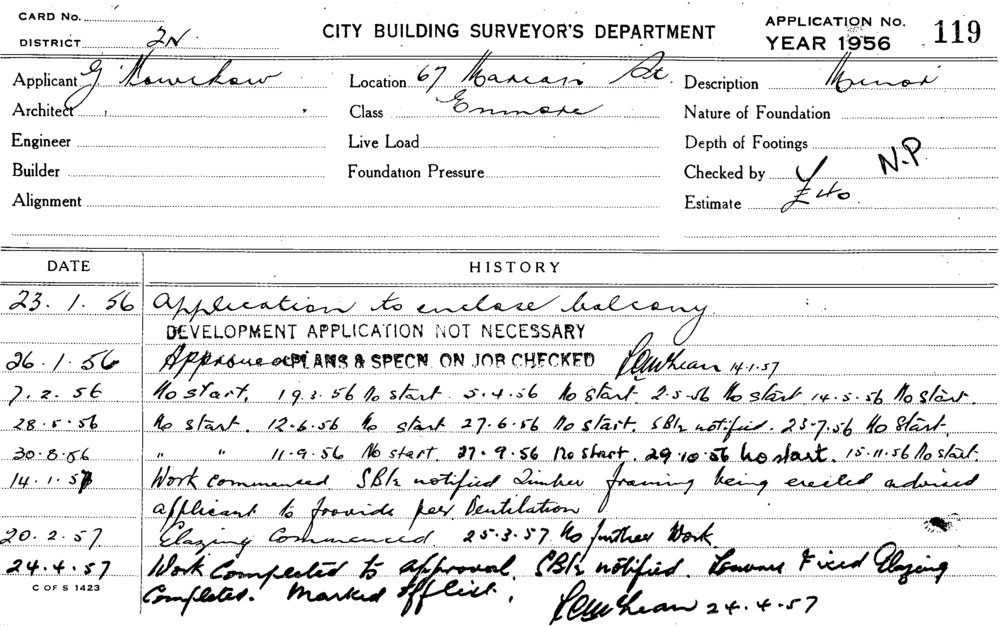 CARD No.
DISTRICT 2N
CITY BUILDING SURVEYOR'S DEPARTMENT
APPLICATION No. 119
YEAR 1956
Applicant G
Location 67 Marian St.
Description Minor
Architect
Class Enmore
Nature of Foundation
Engineer
Live Load
Depth of Footings
Builder
Foundation Pressure
Checked by N.P.
Alignment
Estimate £40
DATE HISTORY
23.1.56 Application to enclose balcony
DEVELOPMENT APPLICATION NOT NECESSARY
26.1.56 Approved PLANS & SPECN. ON JOB CHECKED 14.1.57
7.2.56 No start. 19.3.56 No start. 5.4.56 No start. 2.5.56 No start 14.5.56 No start.
28.5.56 No start. 12.6.56 No start 27.6.56 No start. SBI notified. 23.7.56 No start.
30.8.56 " " 11.9.56 No start. 27.9.56 No start. 29.10.56 No start. 15.11.56 No start.
14.1.57 Work commenced SBI notified Timber framing being erected advised
applicant to provide perm Ventilation
20.2.57 Glazing Commenced 25.3.57 No further Work.
24.4.57 Work Completed to approval. SBI notified. Louvre Fixed Glazing
C OF S 1423
Completed. Marked off list. 24.4.57